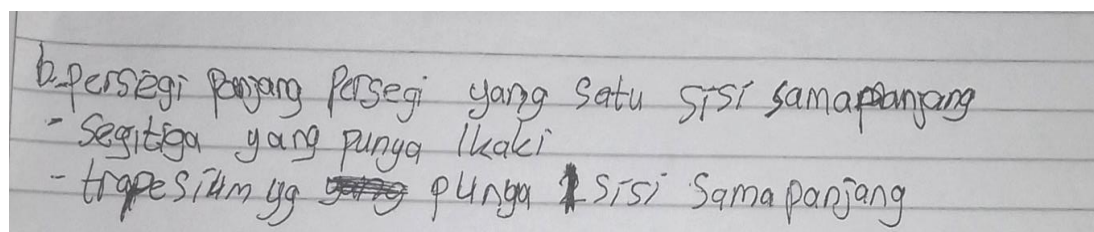 b. persegi panjang persegi yang satu sisi sama panjang
- Segitiga yang punya 1 kaki
- trapesium yg punya 1 sisi sama panjang